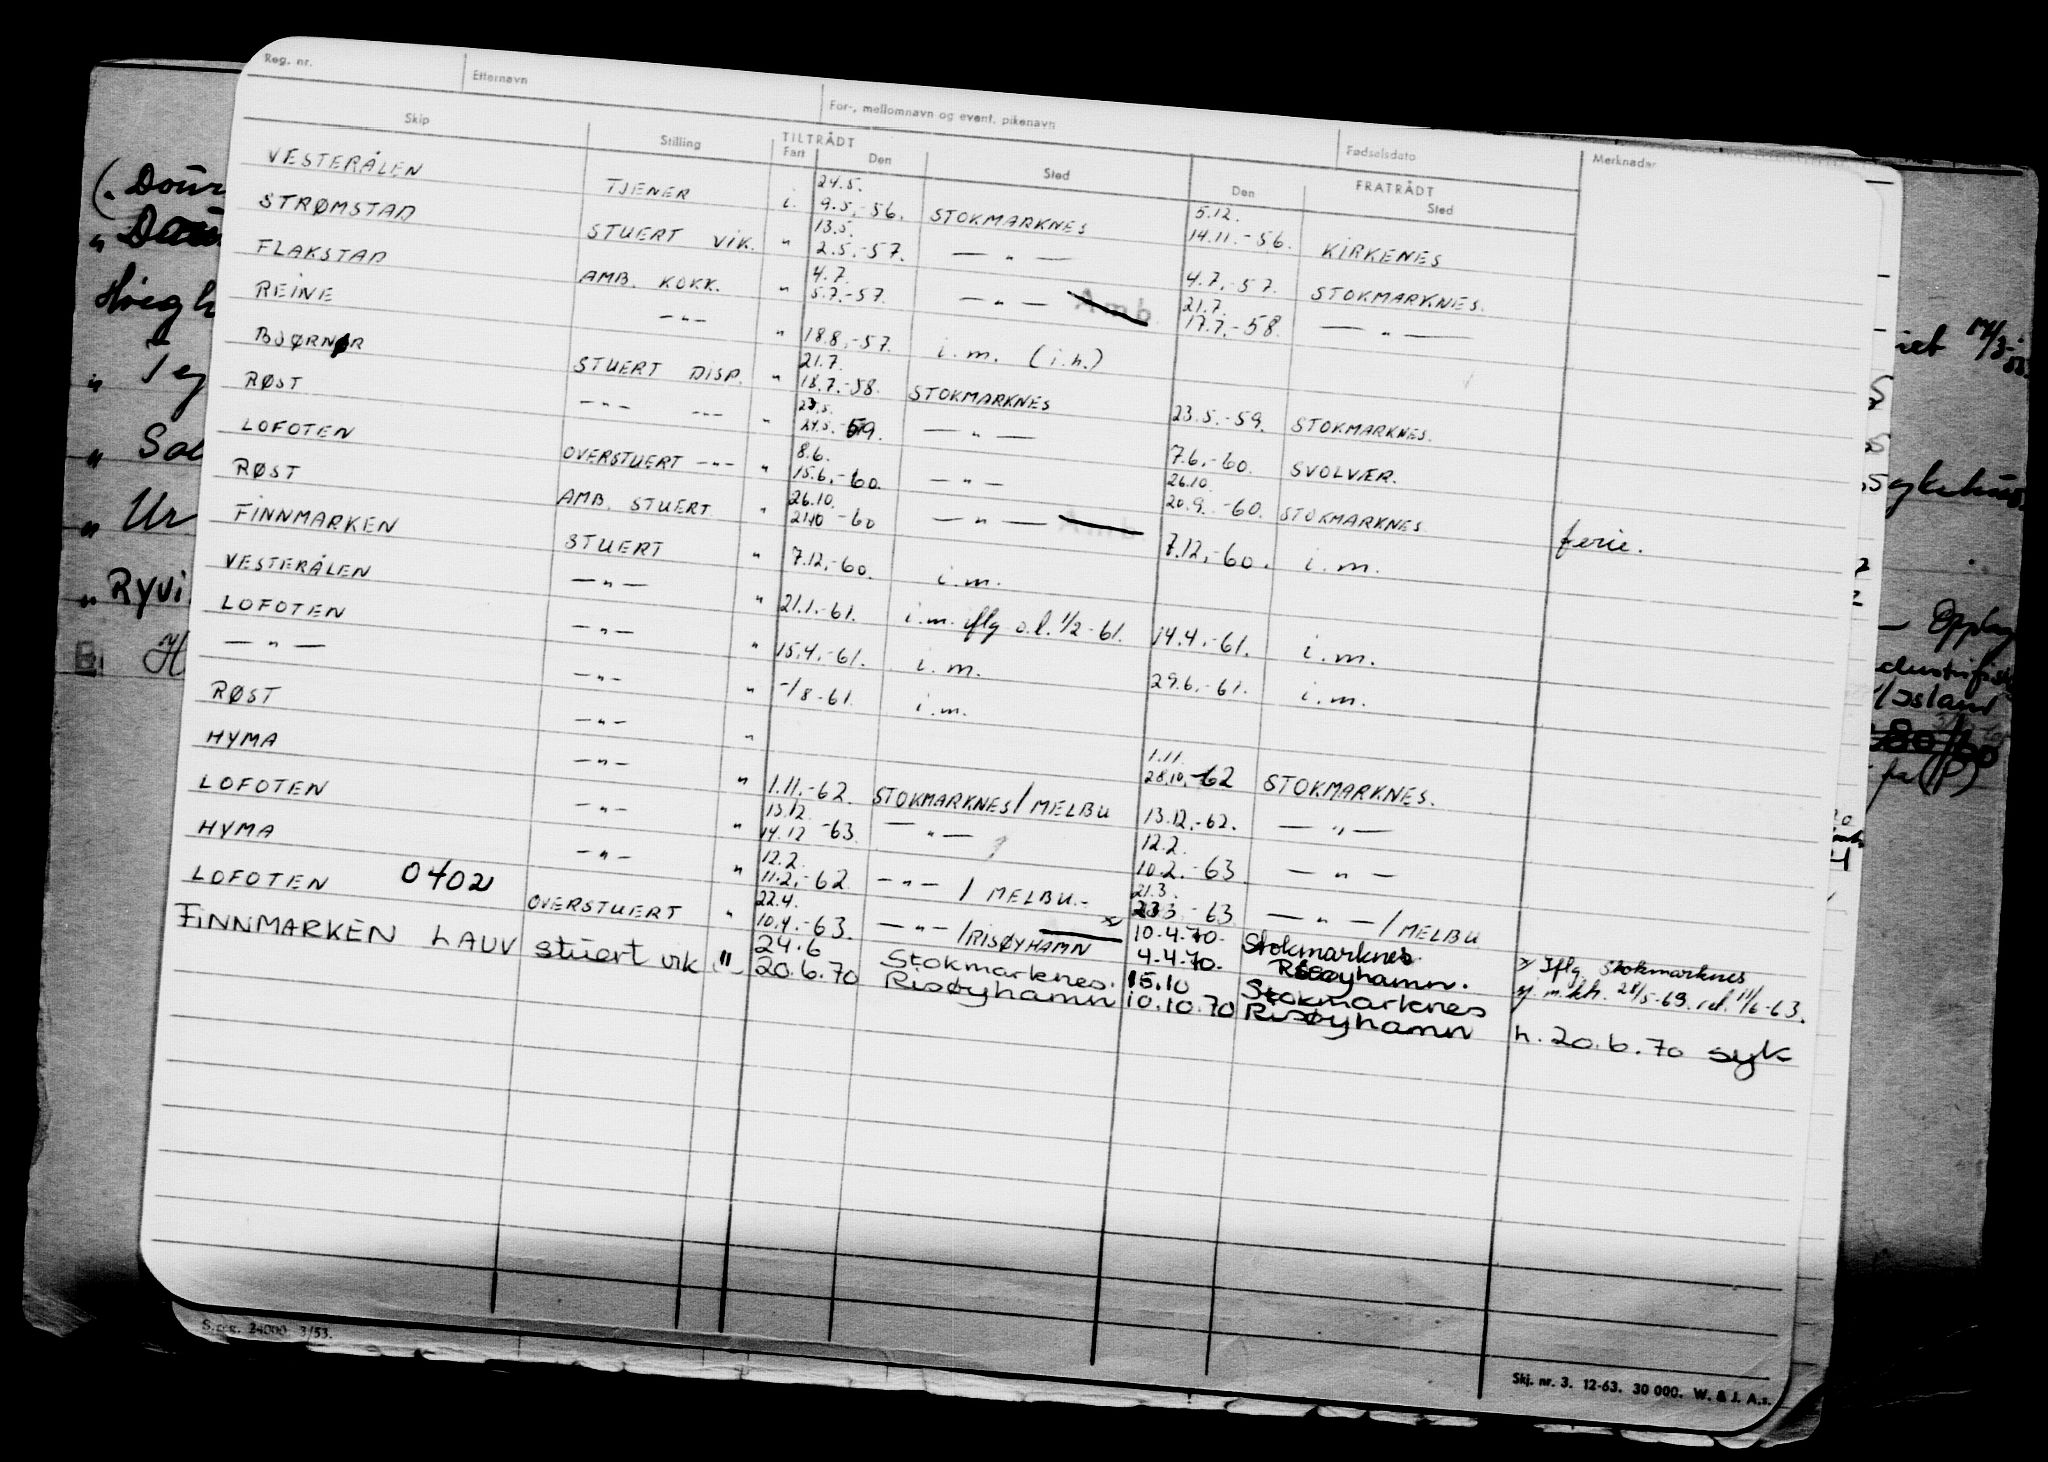 Reg. nr. Etternavn For-, mellomnavn og event. pikenavn Fødselsdato Merknader
Skip Stilling TILTRÅDT FRATRÅDT
Fart Den Sted Den Sted
VESTERÅLEN TJENER i. 24.5. 9.5.-56. STOKMARKNES 5.12. 14.11.-56. KIRKENES
STRØMSTAD STUERT VIK. " 13.5. 2.5.-57. — " — 4.7.-57. STOKMARKNES.
FLAKSTAD AMB. KOKK. " 4.7. 5.7.-57. — " — Amb 21.7. 17.7.-58. — " —
REINE — " — " 18.8.-57. i.m. (i.h.)
BJØRNØR STUERT DISP. " 21.7. 18.7.-58. STOKMARKNES 23.5.-59. STOKMARKNES.
RØST — " — — " — " 23.5. 24.5.-59. — " — 7.6.-60. SVOLVÆR.
LOFOTEN OVERSTUERT — " — " 8.6. 15.6.-60. — " — 26.10. 20.9.-60. STOKMARKNES ferie.
RØST AMB. STUERT " 26.10. 21.10-60 — " — Amb 7.12.-60. i.m.
FINNMARKEN STUERT " 7.12.-60. i.m.
VESTERÅLEN — " — " 21.1.-61. i.m. iflg o.l. 1/2-61. 14.4.-61. i.m.
LOFOTEN — " — " 15.4.-61. i.m. 29.6.-61. i.m.
— " — — " — " -/8-61. i.m.
RØST — " — " 1.11. 28.10.-62 STOKMARKNES.
HYMA — " — " 1.11.-62. STOKMARKNES/MELBU 13.12.-62. — " —
LOFOTEN — " — " 13.12. 14.12-63. — " — 12.2. 10.2.-63. — " —
HYMA — " — " 12.2. 11.2.-62 — " — / MELBU.- 21.3. 23.3.-63 — " — / MELBU
LOFOTEN 0402 OVERSTUERT " 22.4. 10.4.-63. — " — /RISØYHAMN x 10.4.70. 4.4.70. Stokmarknes. Risøyhamn. x Iflg. Stokmarknes
FINNMARKEN LAUV stuert vik " 24.6 20.6.70 Stokmarknes. Risøyhamn 15.10 10.10.70 Stokmarknes Risøyhamn h. 20.6.70 syk
S.reg. 24000 3/53.
Skj. nr. 3. 12-63. 30 000. W. & J. A.s.
(. Dour
"
Høegh
"
" Sal
" Ur
" Ryvi